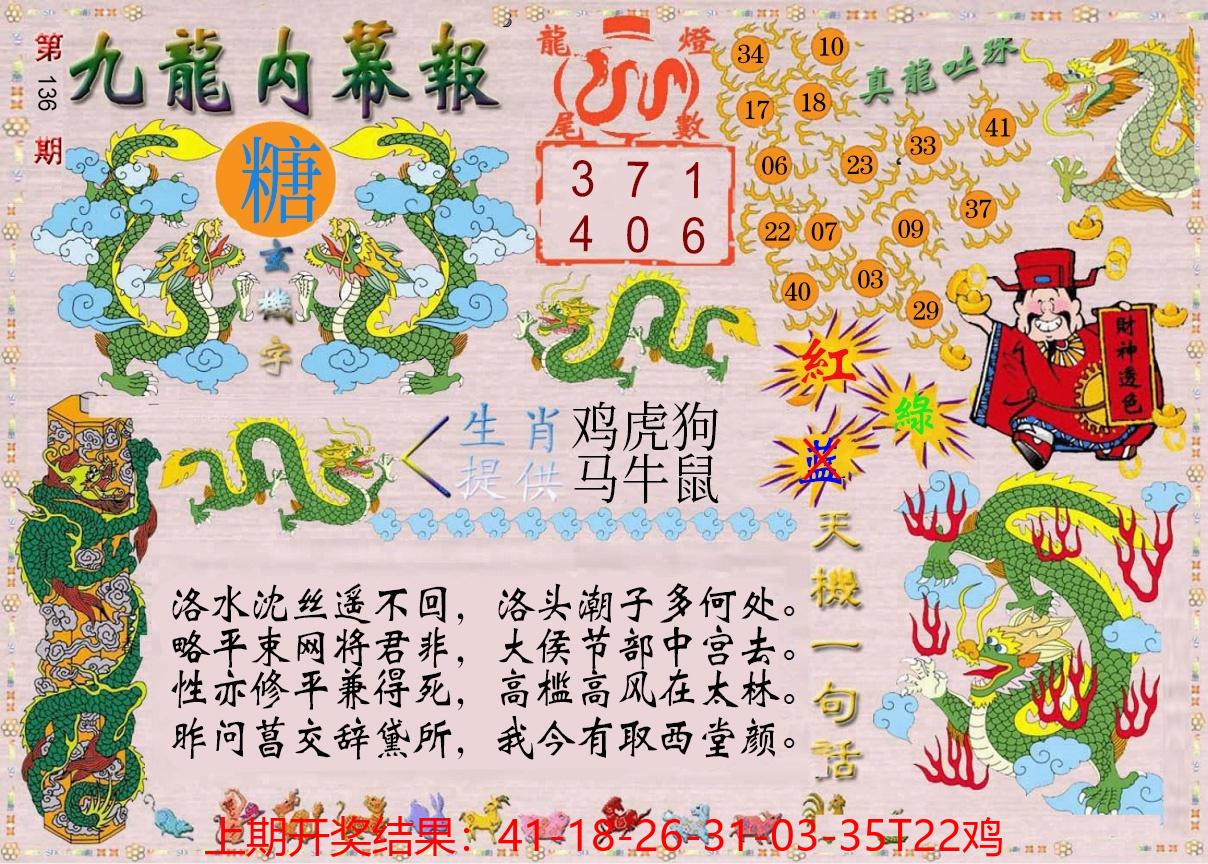 第136期
九龍内幕報
糖
玄機字
龍燈
尾數
3 7 1
4 0 6
真龍吐珠
34 10
17 18
33 41
06 23
37
22 07 09
40 03
29
紅
綠
蓝
財神透色
生肖提供
鸡虎狗
马牛鼠
天機一句話
洛水沈丝遥不回，洛头潮子多何处。
略平束网将君非，大侯节部中宫去。
性亦修平兼得死，高槛高风在太林。
昨问菖交辞黛所，我今有取西堂颜。
上期开奖结果：41-18-26-31-03-35T22鸡